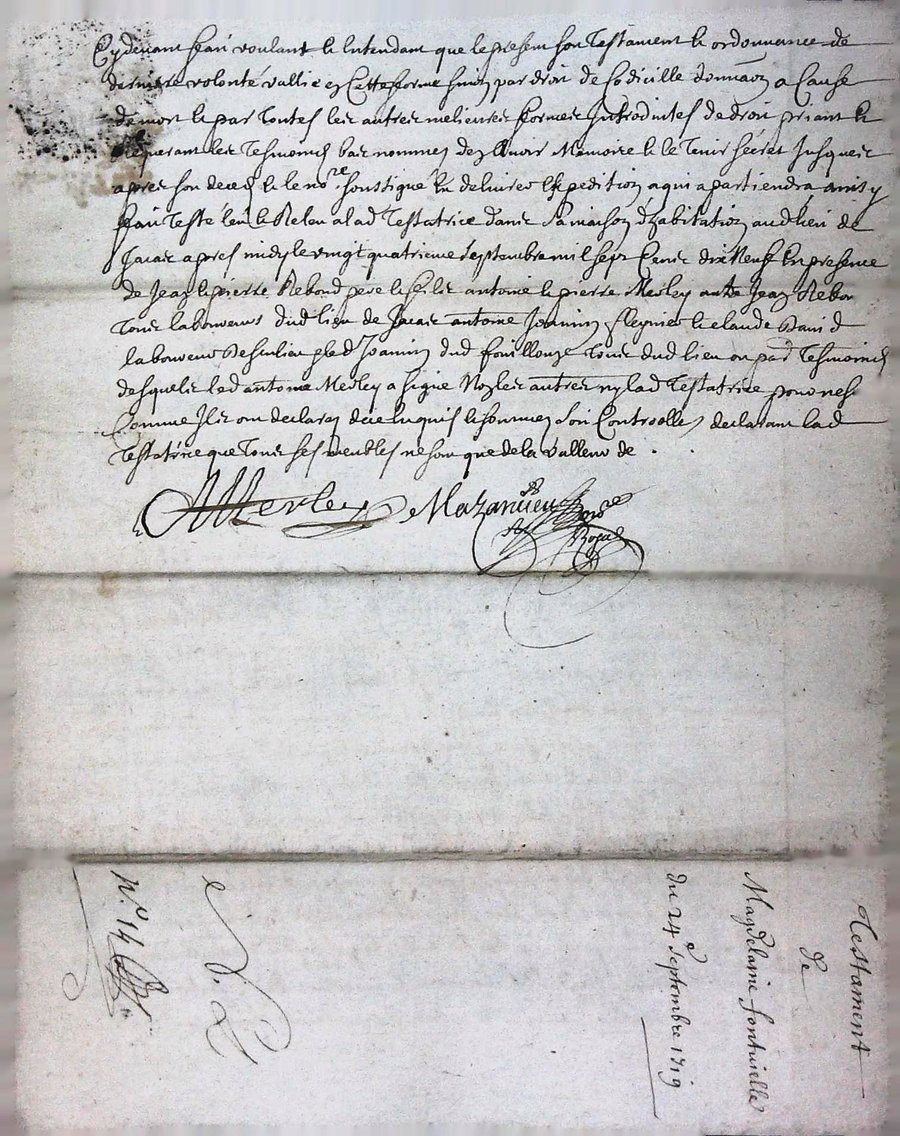 Cy devant fait voulant & Entendant que le present son Testament & ordonnance de
derniere volonté vallie en Cette forme sinon par droit de Codicille donnaon a Cause
de mort & par Toutes les autres melieures formes Introduites de droit priant &
Requerant les Tesmoins bas nommes den avoir Memoire & le Tenir secret Jusques
apres son deces & le no.re soussigné En delivrer Expedition a qui apartiendra ainsy
fait Testé leu & Releu a lad Testatrice dans sa maison d'habitation aud lieu de
apres midy le vingt quatrieme septembre mil sept Cens dix Neuf En presence
de Jean & pierre Rebond pere & fils antoine & pierre Merley autre Jean Rebon
Tous laboureurs dud lieu de antoine Joanin & claude
laboureur led Joanin dud fouillouze Tous dud lieu Tesmoins
desquels led antoine Merley a signé Non les autres ny lad Testatrice pour ne
Comme Ils ont declaré de ce Enquis & sommes Soit Controollé declarant lad
Testatrice que Tous ses meubles ne sont que de la valleur de .
AMerley Mazanieu no.re
Royal
Testament
de
Magdelaine fontvielle
du 24e Septembre 1719
N.o 14